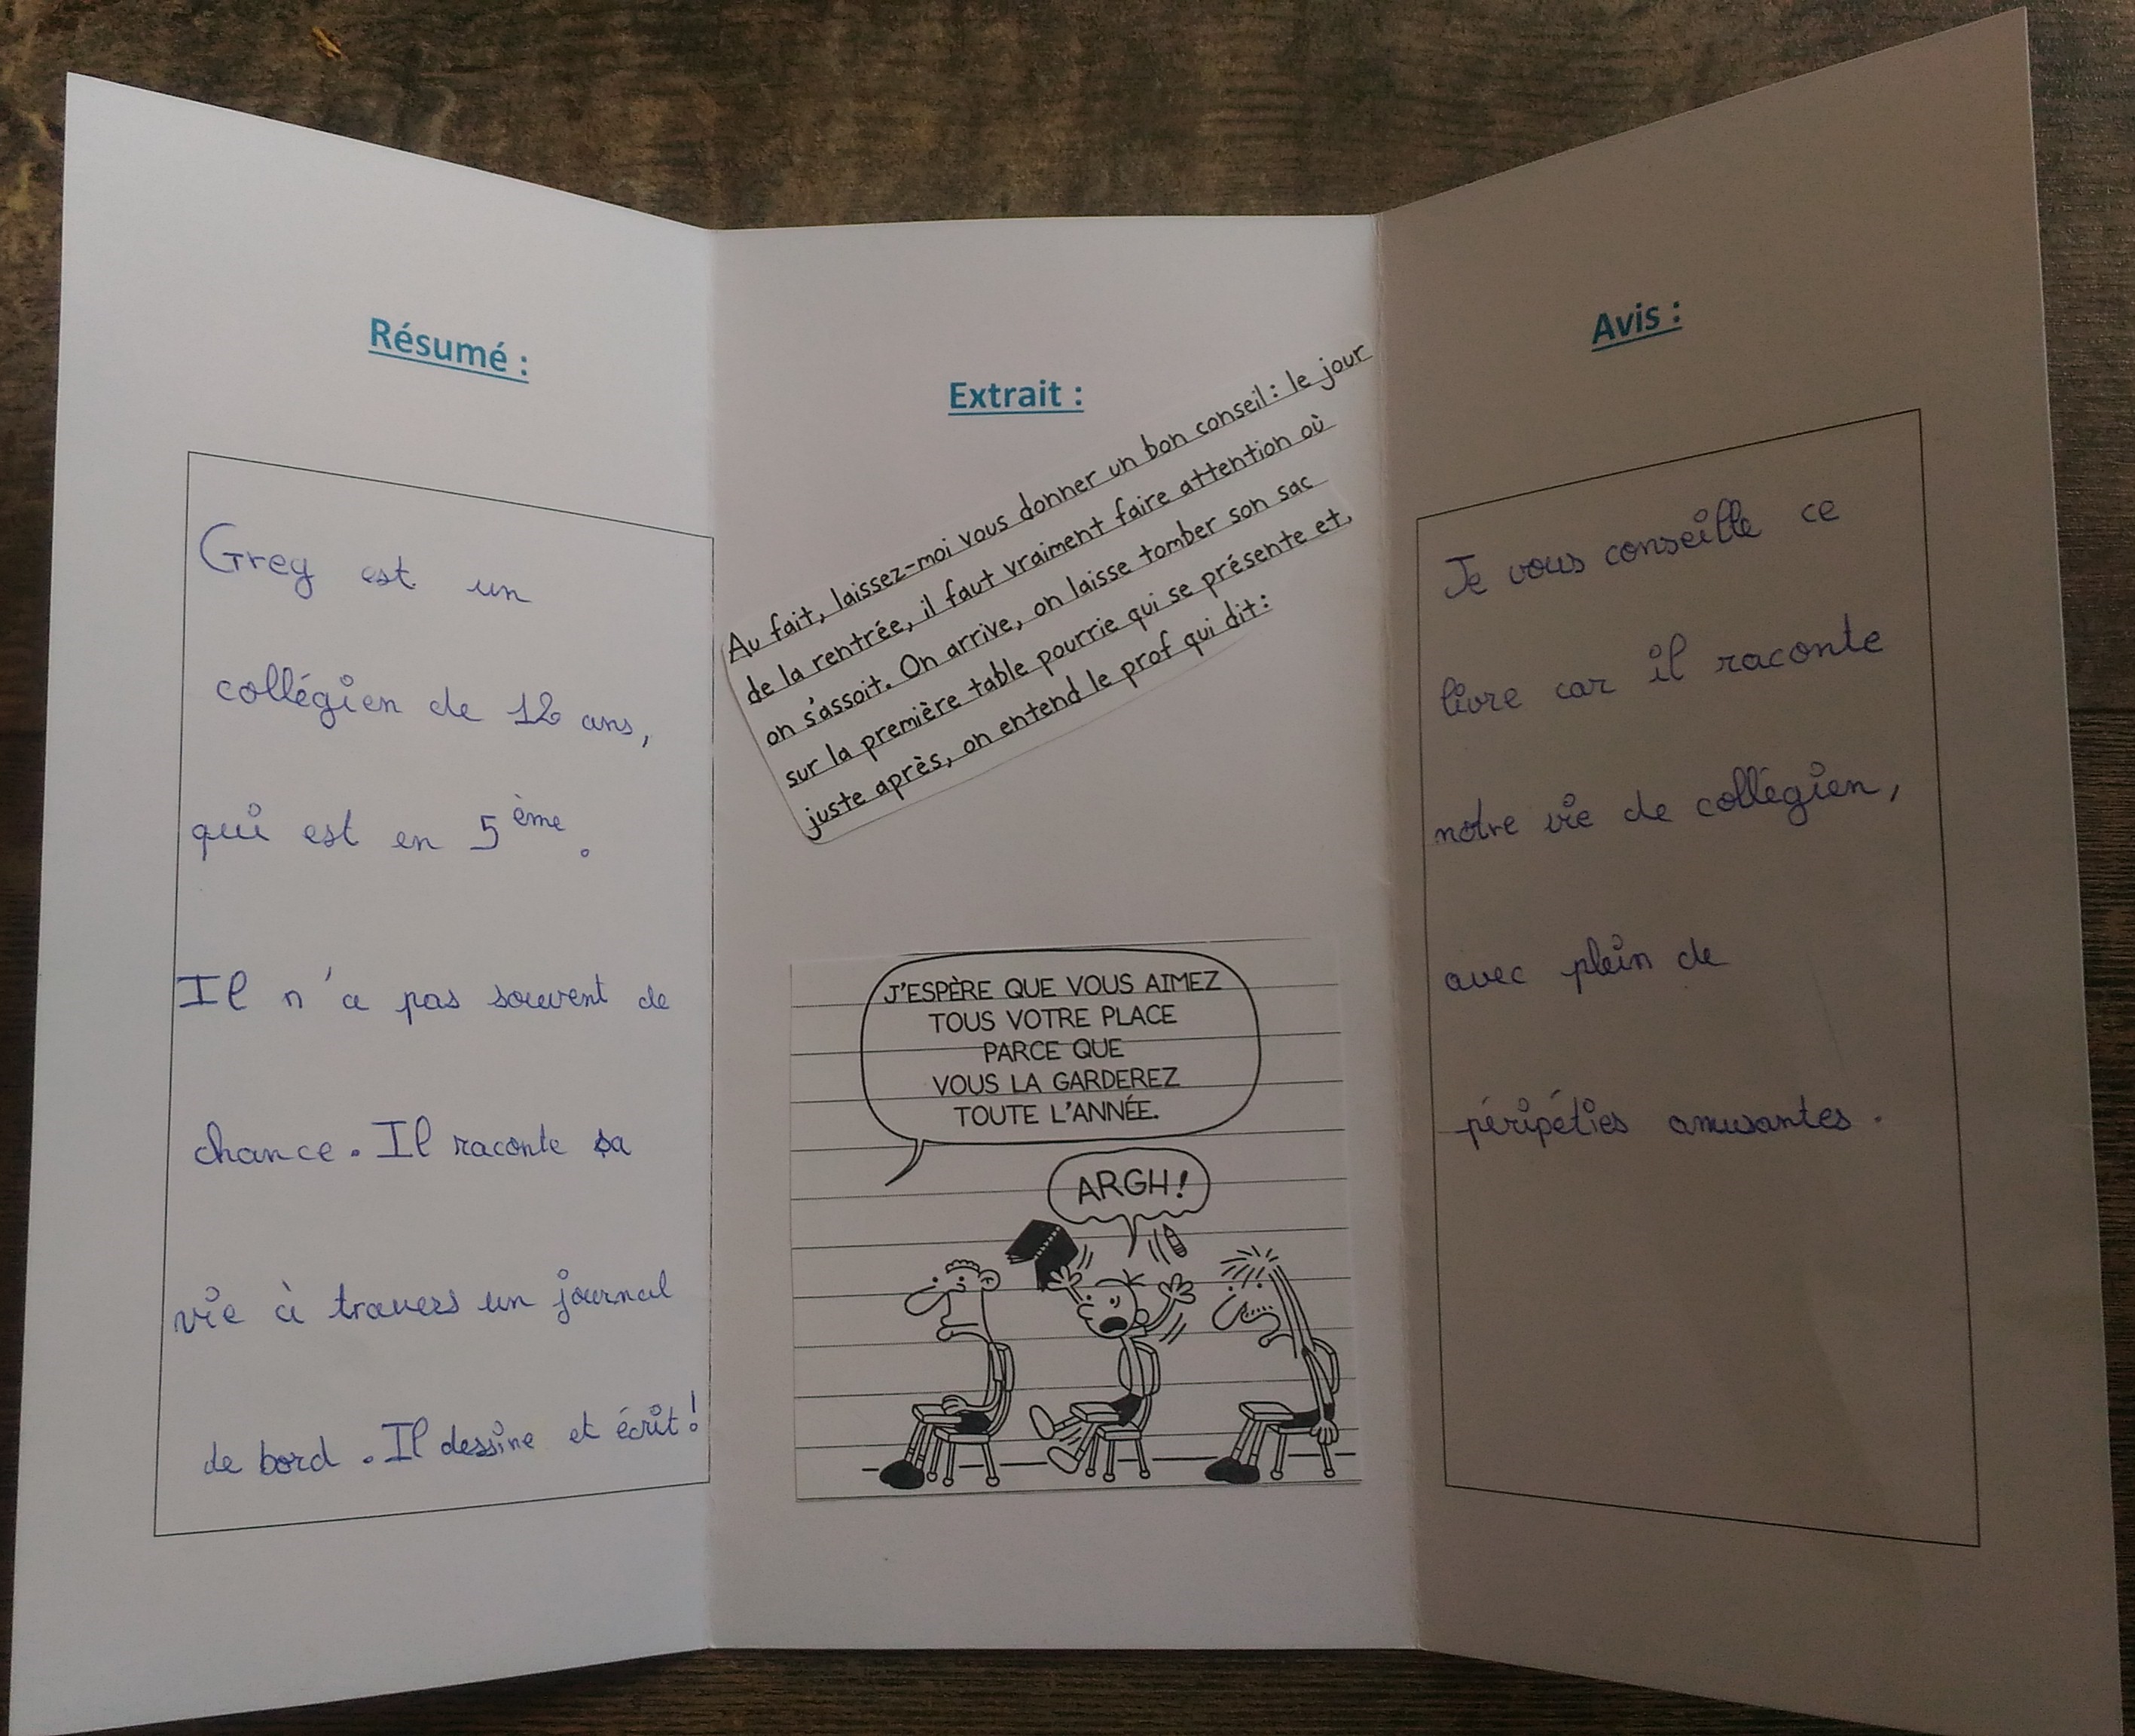 Résumé :
Greg est un
collégien de 12 ans,
qui est en 5ème.
Il n'a pas souvent de
chance. Il raconte sa
vie à travers un journal
de bord. Il dessine et écrit!
Extrait :
Au fait, laissez-moi vous donner un bon conseil: le jour
de la rentrée, il faut vraiment faire attention où
on s'assoit. On arrive, on laisse tomber son sac
sur la première table pourrie qui se présente et,
juste après, on entend le prof qui dit:
J'ESPÈRE QUE VOUS AIMEZ
TOUS VOTRE PLACE
PARCE QUE
VOUS LA GARDEREZ
TOUTE L'ANNÉE.
ARGH!
Avis :
Je vous conseille ce
livre car il raconte
notre vie de collégien,
avec plein de
péripéties amusantes.